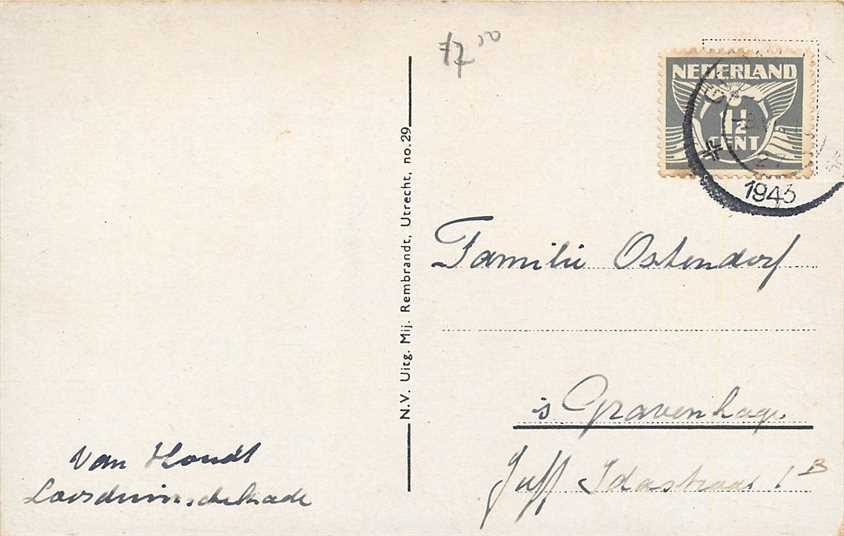 17⁰⁰
NEDERLAND
1½
CENT
1943
N.V. Uitg. Mij. Rembrandt, Utrecht, no. 29
Familie Ostendorf
's Gravenhage
Juff Idastraat 1 B
van Houdt
Loosduinschekade